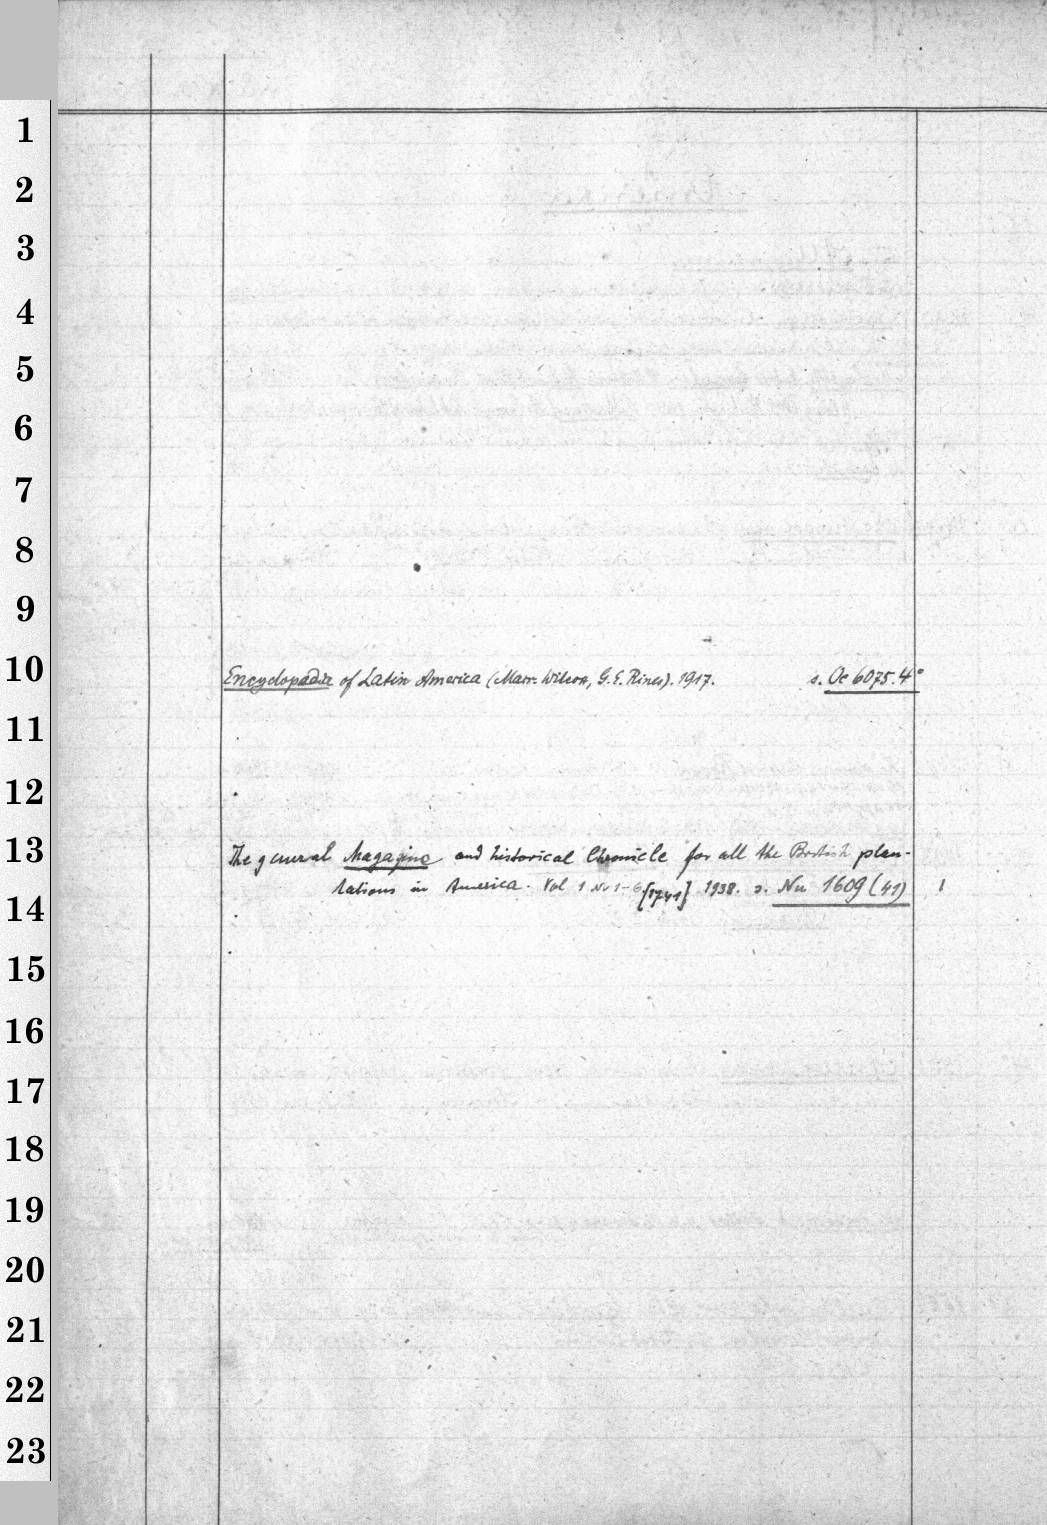 1
2
3
4
5
6
7
8
9
10
Encyclopaedia of Latin America (Marr. Wilcox, G. E. Rines). 1917. s. Oc 6075.4°
11
12
13
The general Magazine and historical Chronicle for all the British plan-
tations in America. Vol 1 Nr 1-6 [1741] 1938. s. Nu 1609 (41) 1
14
15
16
17
18
19
20
21
22
23